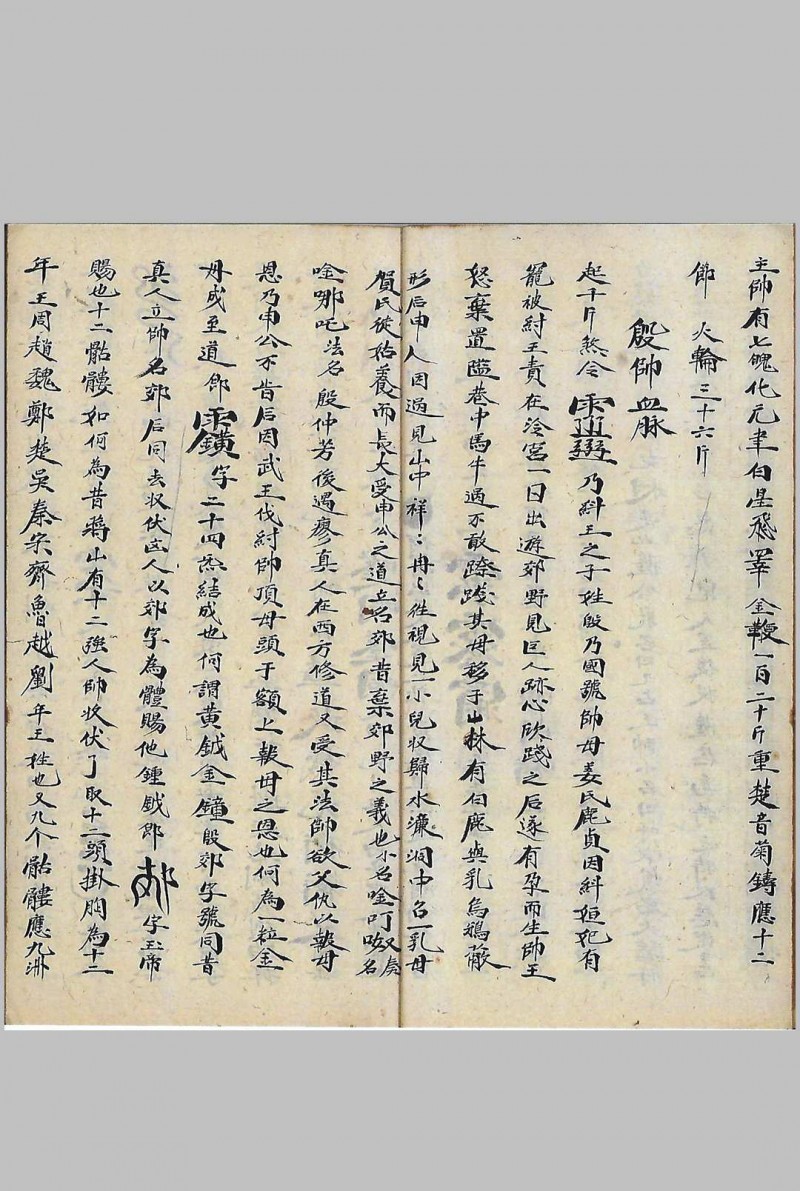 主帥有七魄化九聿白星飛罩金鞭一百二十斤重楚音菊鑄應十二
節 火輪三十六斤
殷帥血脉
起千斤煞令 乃紂王之子姓殷乃國號帥母姜氏鹿貞因紂妲妃有
寵被紂王責在冷宮一日出遊郊野見巨人跡心欣踐之后遂有孕而生帥王
怒棄置隘巷中馬牛過不敢踐其母移于山林有白鹿與乳烏鴉蔽
形后申人因過見山中祥〻冉〻往視見一小兒収歸水濂洞中召一乳母
賀氏徒始養而長大受申公之道立名郊昔棄郊野之義也小名唫叮㕭奏名
唫哪吒法名殷仲芳後遇廖真人在西方修道又受其法帥欲父仇以報母
恩乃申公不肯后因武王伐紂帥頂母頭于額上報母之恩也何為一粒金
丹成至道即 字二十四炁結成也何謂黄鉞金鐘殷郊字號同昔
真人立帥名郊后同去収伏凶人以郊字為體賜他鍾鉞即 字玉帝
賜也十二骷髏如何為昔鴉山有十二強人帥收伏了取十二頭掛胸為十二
年王周趙魏鄭楚吳秦宋齊魯越劉年王姓也又九个骷髏應九洲